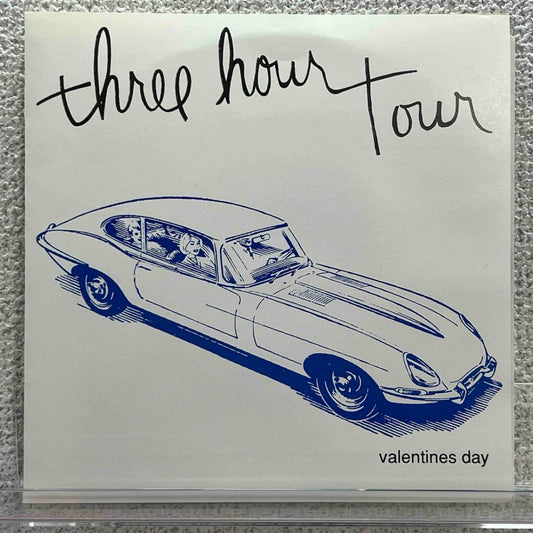 three hour Tour
valentines day